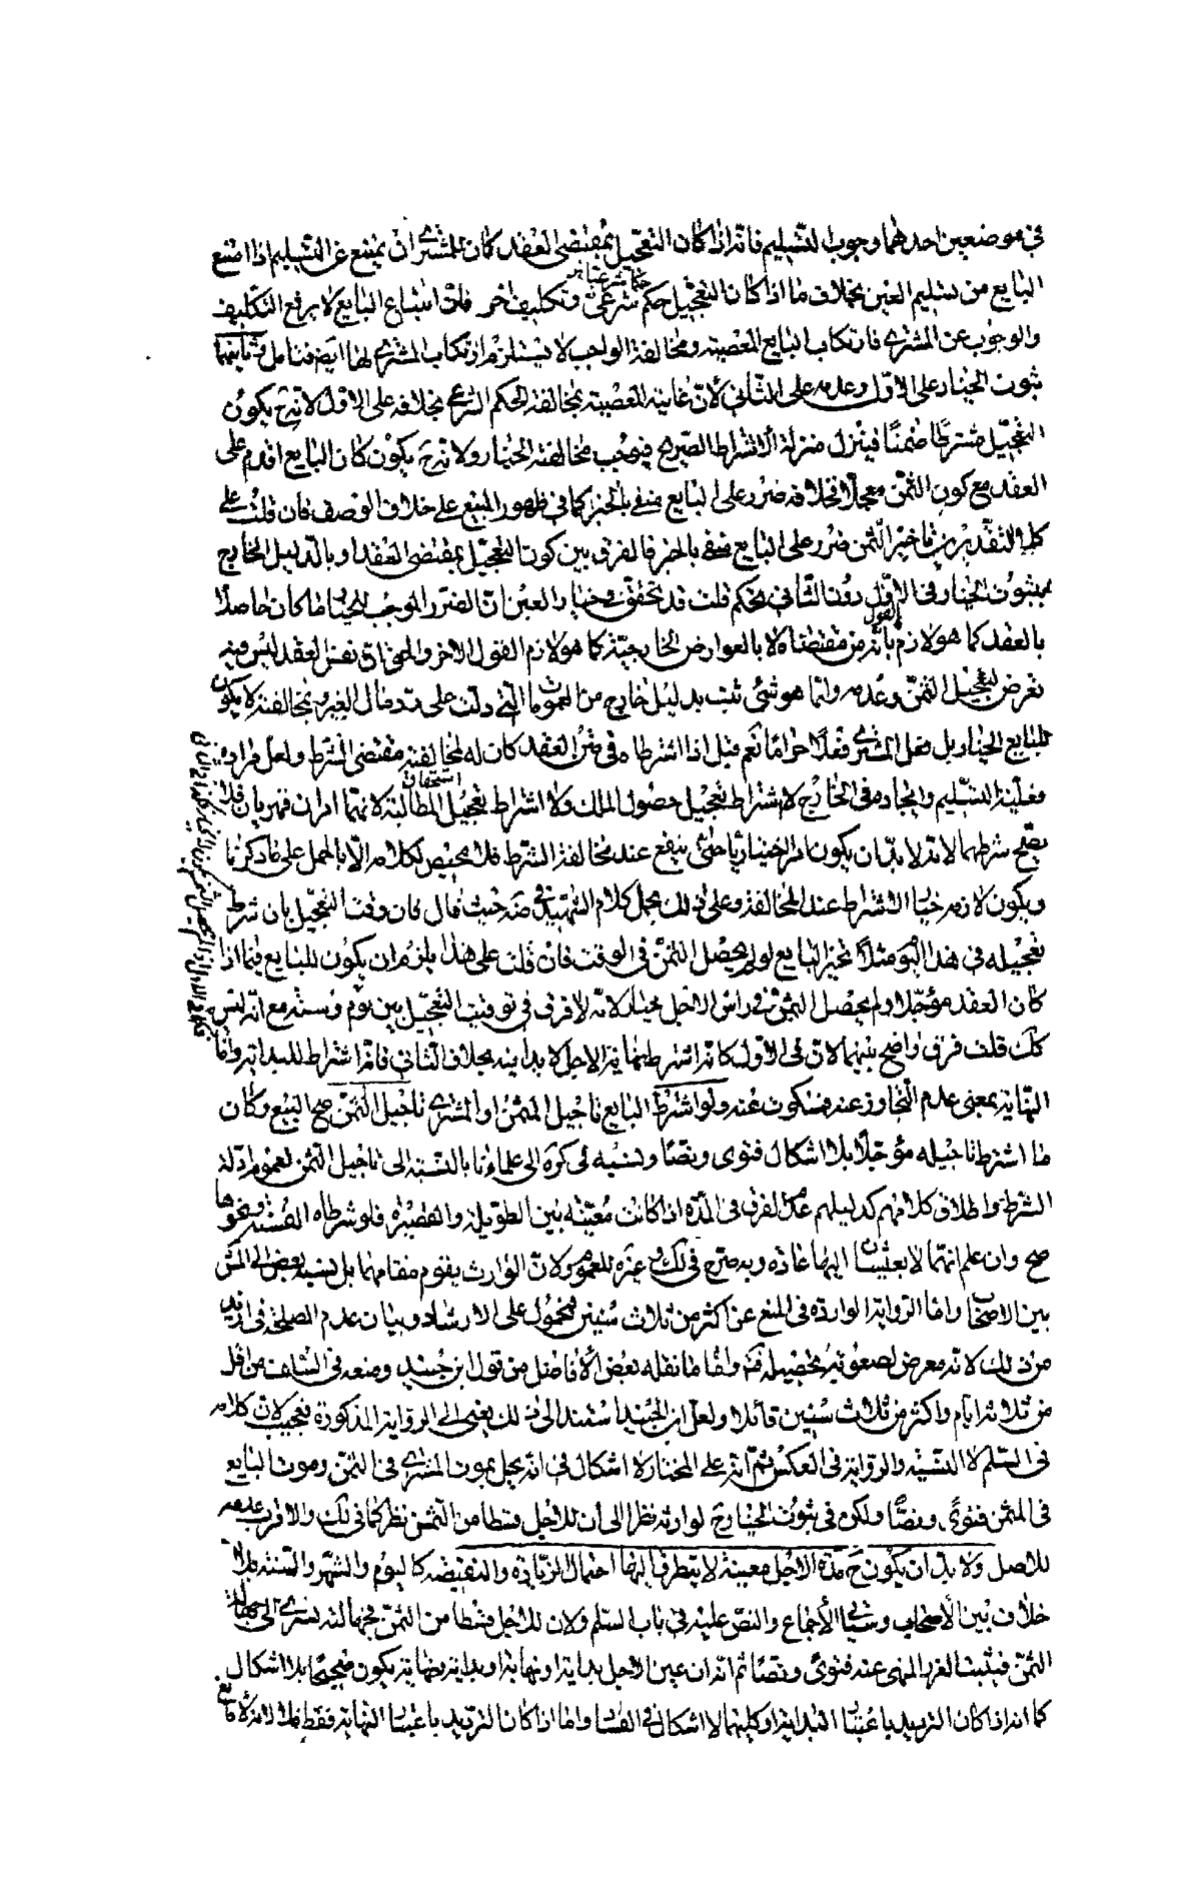 في موضعين احدهما وجوب التسليم فانه اذا كان التعجيل بمقتضى العقد كان للمشتري ان يمتنع عن التسليم اذا امتنع
البايع من تسليم العين بخلاف ما اذا كان التعجيل حكم شرعي وتكليف اخر فان امتناع البايع لا يرفع التكليف
والوجوب عن المشتري فارتكاب البايع المعصية ومخالفة الواجب لا يستلزم ارتكاب المشتري لها ايضا فتامل وثانيهما
ثبوت الخيار على الاول وعدمه على الثاني لان غايته المعصية بمخالفة الحكم الشرعي بخلافه على الاول لانه ح يكون
التعجيل مشترطا ضمنا فينزل منزلة الاشتراط الصريح فيوجب مخالفته الخيار ولانه ح يكون كان البايع اقدم على
العقد مع كون الثمن معجلا فخلافه ضرر على البايع منفي بالخبر كما في ظهور المبيع على خلاف الوصف فان قلت على
كلا التقديرين تاخير الثمن ضرر على البايع منفي بالخبر فالفرق بين كون التعجيل بمقتضى العقد او بالدليل الخارج
بثبوت الخيار في الاول دون الثاني تحكم قلت قد تحقق في خيار العبن ان الضرر الموجب للخيار ما كان حاصلا
بالعقد كما هو لازم القول بانه من مقتضاه لا بالعوارض الخارجية كما هو لازم القول الاخر والحق ان نفس العقد ليس فيه
تعرض لتعجيل الثمن وعدمه وانما هو شئ ثبت بدليل خارج من العمومات التي دلت على رد مال الغير بمخالفته لا يكون
للبايع الخيار بل فعل المشتري فعلا حراما نعم قيل اذا اشترطاه في ضمن العقد كان له لمخالفته مقتضى الشرط ولعل مراده
فعلية التسليم وايجاده في الخارج لا اشتراط تعجيل حصول الملك ولا اشتراط تعجيل استحقاق المطالبة لانهما امران قهريان فلا
يصح شرطهما لانه لا بد ان يكون امرا اختياريا حتى ينفع عند مخالفة الشرط فلا محيص لكلامه الا بالحمل على ما ذكرنا
ويكون لازمه خيار الاشتراط عند المخالفة وعلى ذلك يحمل كلام الشهيد في ضه حيث قال فان وقت التعجيل بان شرط
تعجيله في هذا اليوم مثلا تخير البايع لو لم يحصل الثمن في الوقت فان قلت على هذا يلزم ان يكون للبايع فيما اذا
كان العقد مؤجلا ولم يحصل الثمن في راس الاجل خيار لانه لا فرق في توقيت التعجيل بين يوم وسنة مع انه ليس
كك قلت فرق واضح بينهما لان في الاول كانه اشترط نهاية الاجل لا بدايته بخلاف الثاني فانه اشتراط للبداية واما
النهاية بمعنى عدم التجاوز عنه فمسكوت عنه ولو اشترط البايع تاجيل المثمن او المشتري تاجيل الثمن صح البيع وكان
ما اشترط تاجيله مؤجلا بلا اشكال فتوى ونصا ونسبه في كره الى علماءنا بالنسبة الى تاجيل الثمن لعموم ادلة
الشرط واطلاق كلامهم كدليلهم عدم الفرق في المدة اذا كانت معينة بين الطويلة والقصيرة فلو شرطاه الف سنة ونحوها
صح وان علم انهما لا يعيشان اليها عادة وبه صرح في لك وغيره للعموم ولان الوارث يقوم مقامهما بل نسبه بعض الى المش
بين الاصحاب واما الرواية الواردة في المنع عن اكثر من ثلاث سنين فمحمول على الارشاد وبيان عدم الصلحة في ازيد
من ذلك لانه معرض لصعوبة تحصيله فتم واما ما نقله بعض الافاضل من قول ابن جنيد ومنعه في السلف من اقل
من ثلاثة ايام واكثر من ثلاث سنين قائلا ولعل ابن الجنيد استند الى ذلك يعني الى الرواية المذكورة فعجيب لان كلامه
في السلم لا النسية والرواية في العكس ثم انه على المختار لا اشكال في انه يحل بموت المشتري في الثمن وموت البايع
في المثمن فتوى ونصا ولكن في ثبوت الخيار ح لوارثه نظرا الى ان للاجل قسطا من الثمن نظر كما في لك والاقرب عدمه
للاصل ولا بد ان يكون ح مدة الاجل معينة لا يتطرق اليها احتمال الزيادة والنقيصة كاليوم والشهر والسنة بلا
خلاف بين الاصحاب وسيجئ الاجماع والنص عليه في باب السلم ولان للاجل قسطا من الثمن فجهالته تسري الى جهالة
الثمن فيثبت الغرر المنهي عنه فتوى ونصا ثم انه ان عين الاجل بداية او نهاية او بداية ونهاية يكون صحيحا بلا اشكال
كما انه اذا كان الترديد باعتبار البداية او كليهما لا اشكال في الفساد واما اذا كان الترديد باعتبار النهاية فقط